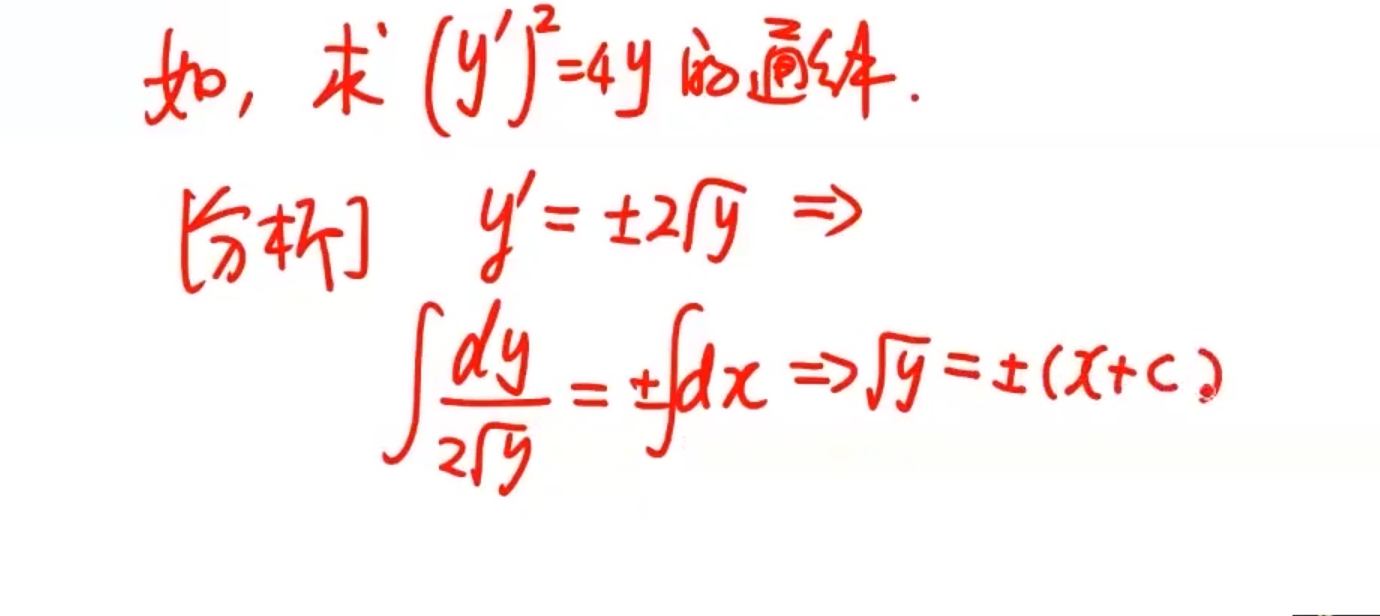 如, 求 (y′)²=4y 的通解.
[分析] y′ = ±2√y ⇒
∫ dy/(2√y) = ±∫dx ⇒ √y = ±(x+c)